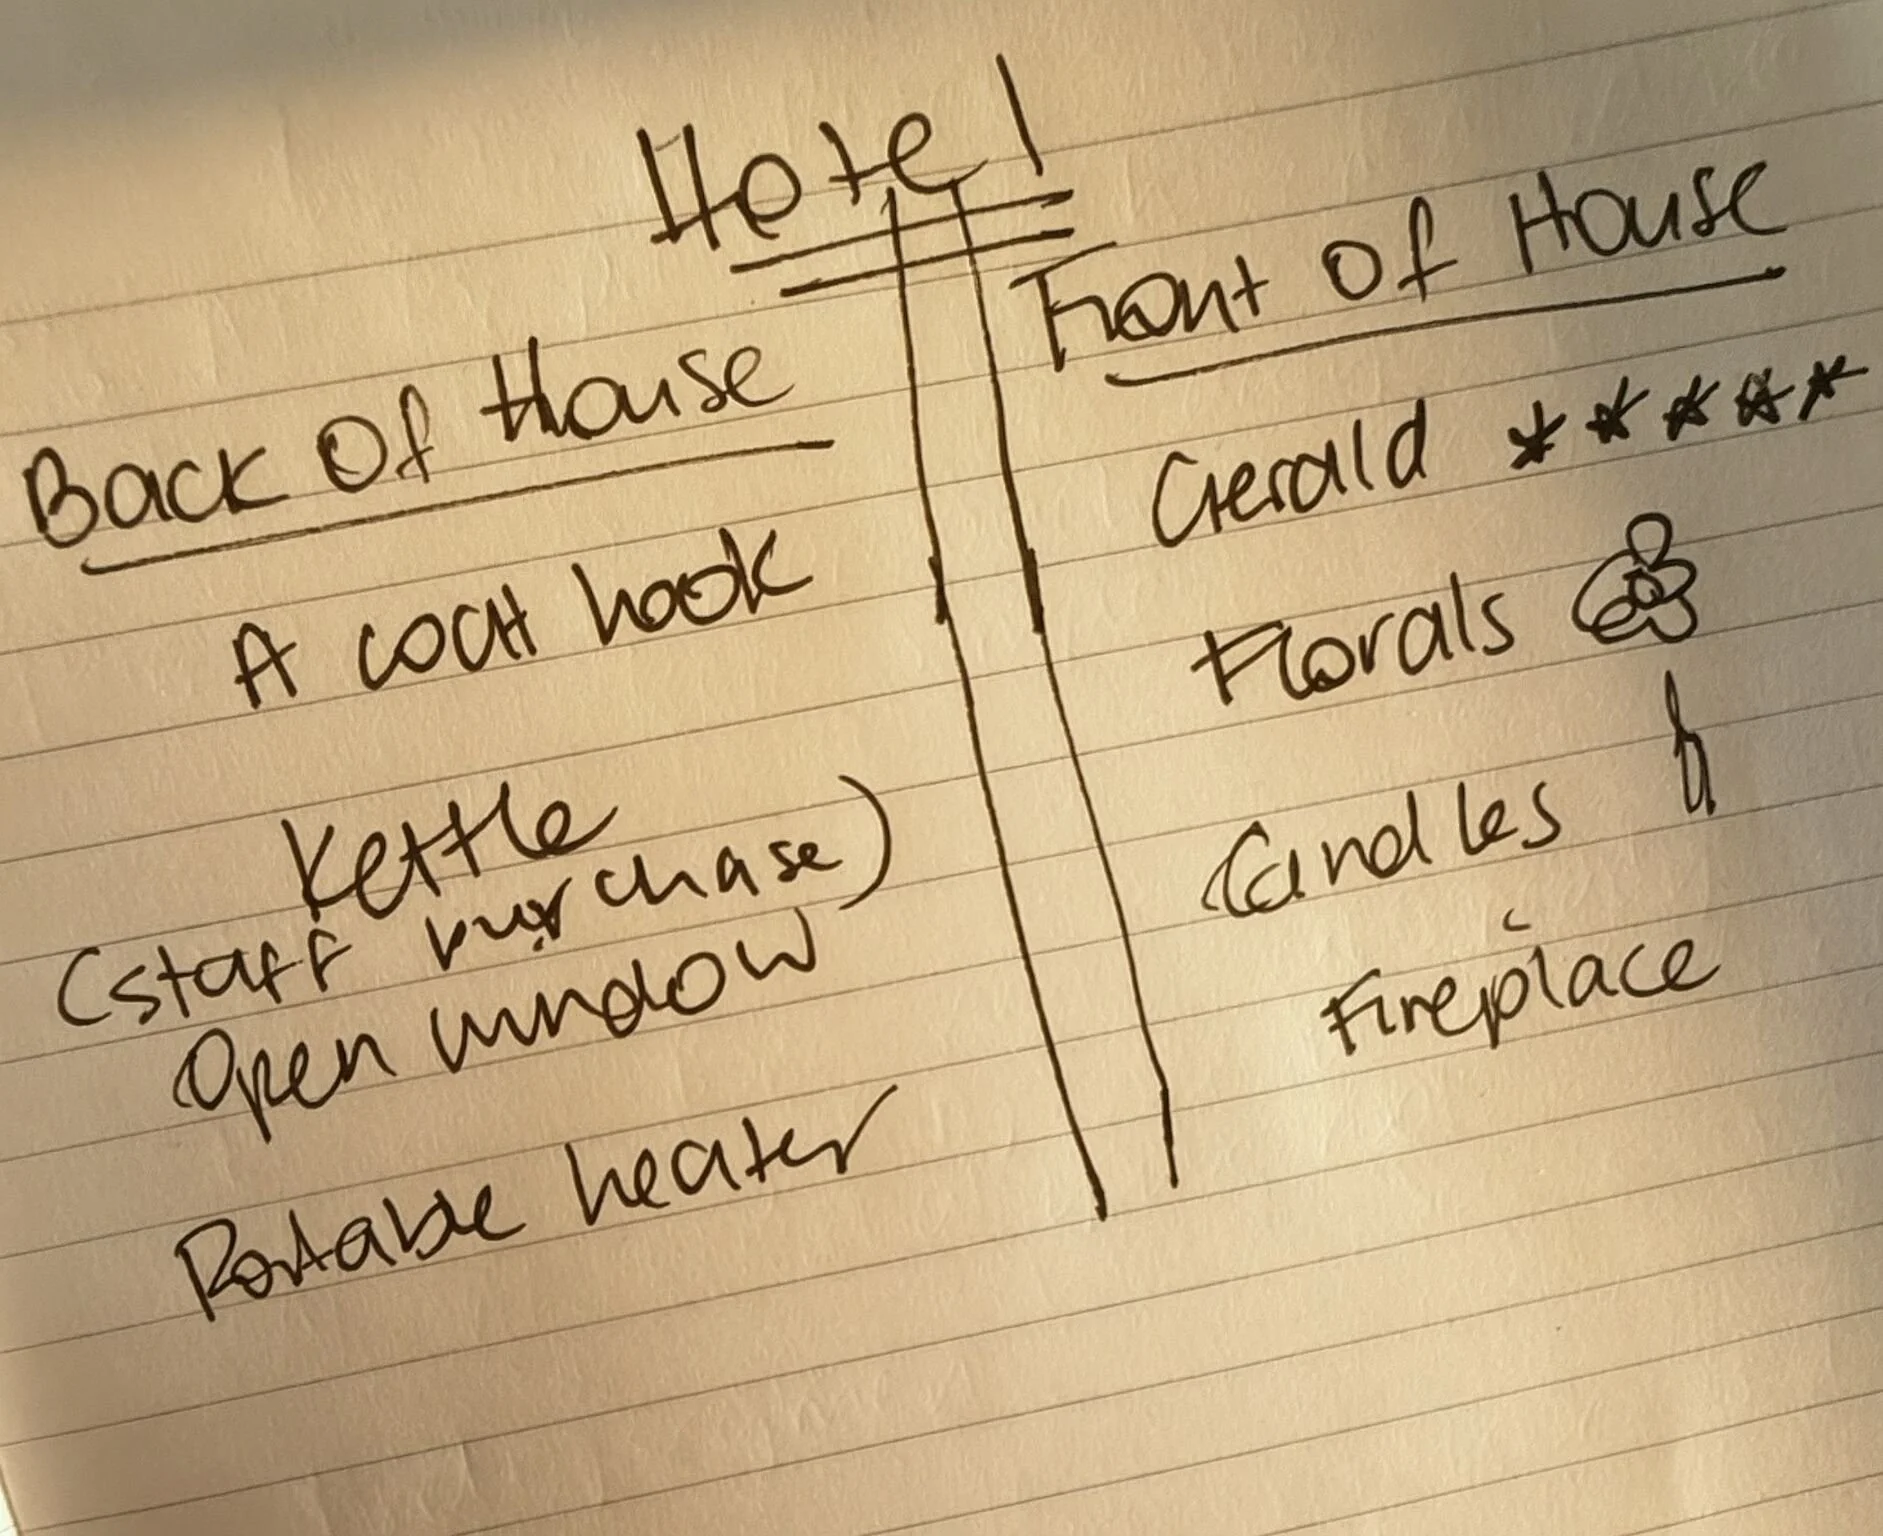 Hotel
Back Of House
A coat hook
Kettle
(staff purchase)
Open window
Portable heater
Front Of House
Gerald *****
Florals
Candles
Fireplace